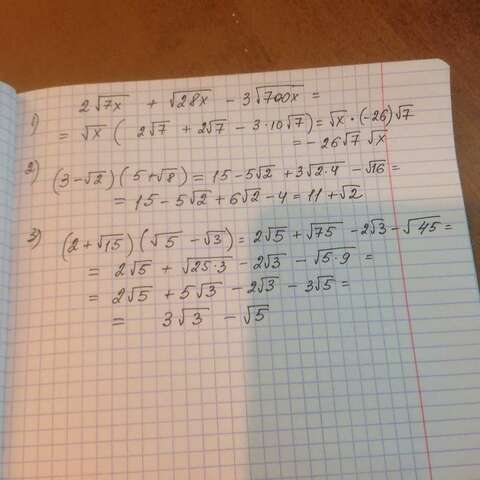 1) 2√7x + √28x - 3√700x =
= √x ( 2√7 + 2√7 - 3·10√7) = √x · (-26)√7
= - 26√7 √x
2) (3-√2)(5+√8) = 15 - 5√2 + 3√2·4 - √16 =
= 15 - 5√2 + 6√2 - 4 = 11 + √2
3) (2+√15)(√5 - √3) = 2√5 + √75 - 2√3 - √45 =
= 2√5 + √25·3 - 2√3 - √5·9 =
= 2√5 + 5√3 - 2√3 - 3√5 =
= 3√3 - √5